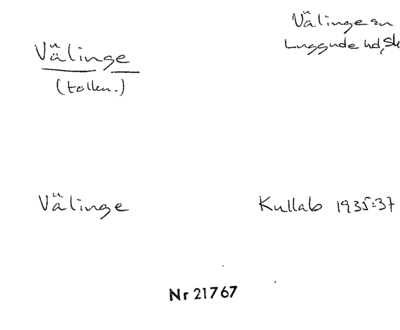 Välinge
(tolkn.)
Välinge sn
Luggude hd, Sk
Välinge
Kullab 1935:37
Nr 21767